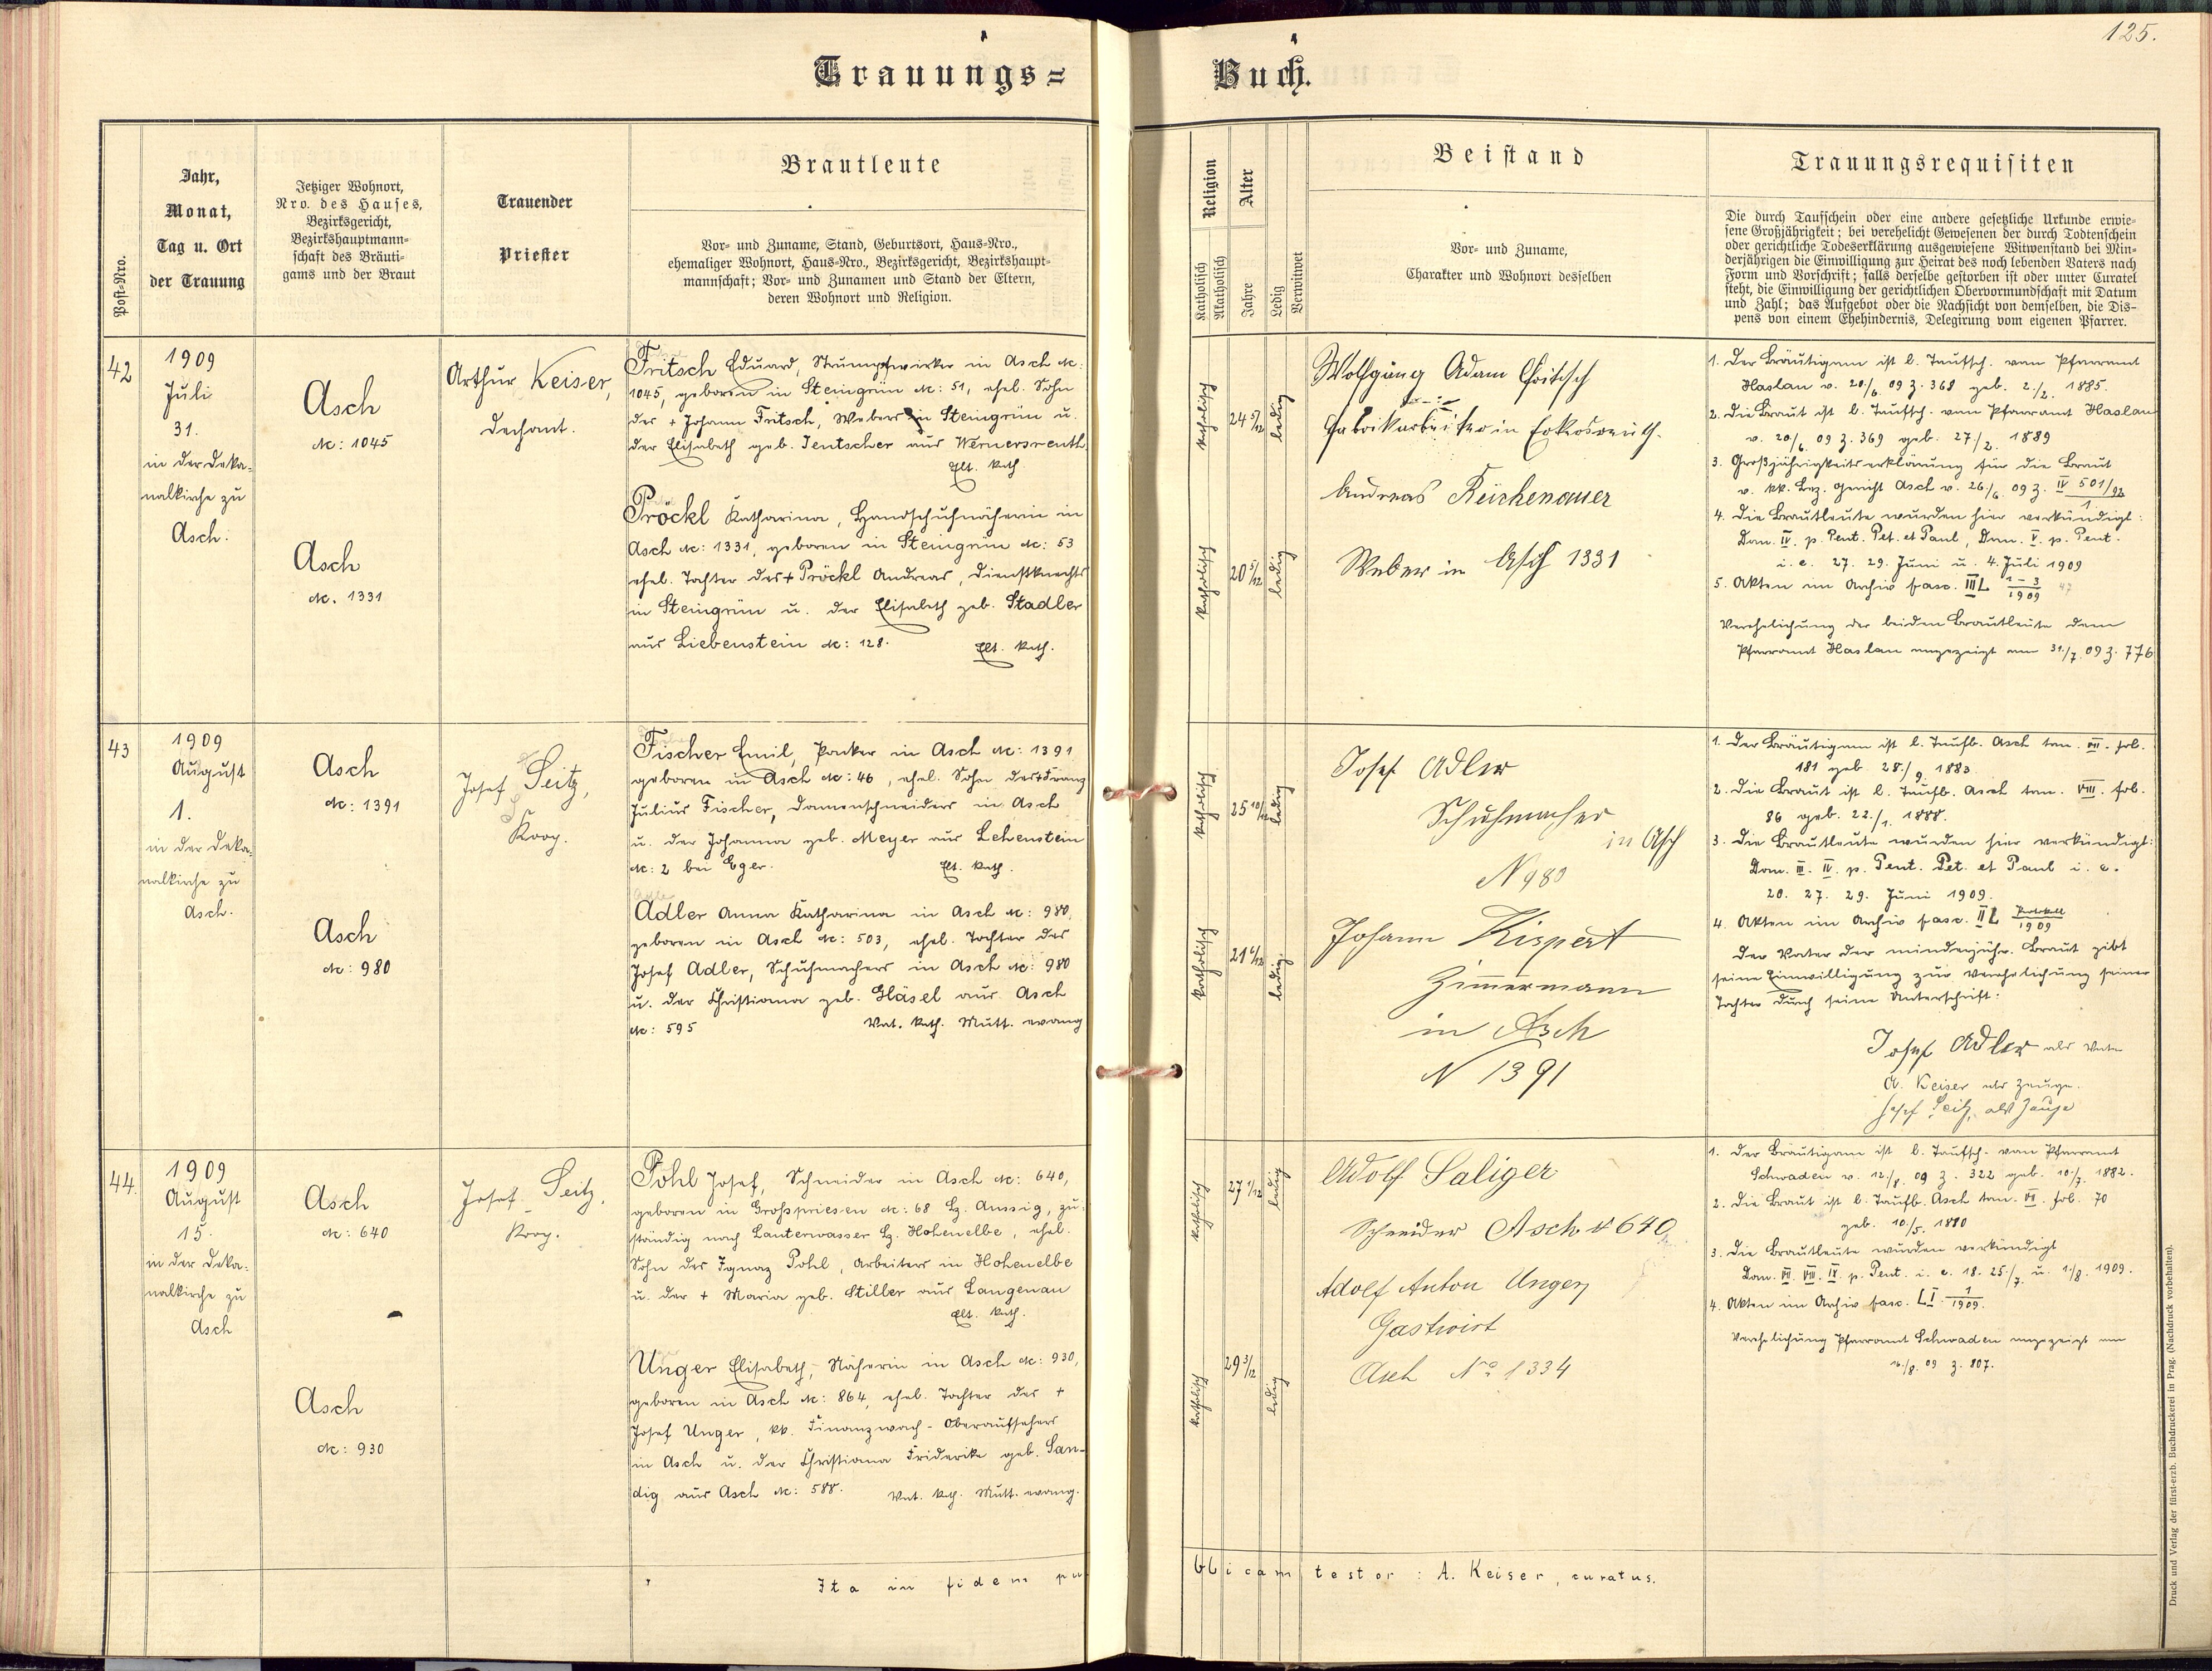 125.
Trauungs=
Buch.
Post-Nro.
Jahr,
Monat,
Tag u. Ort
der Trauung
Jetziger Wohnort,
Nro. des Hauses,
Bezirksgericht,
Bezirkshauptmann-
schaft des Bräuti-
gams und der Braut
Trauender
Priester
Brautleute
Vor- und Zuname, Stand, Geburtsort, Haus-Nro.,
ehemaliger Wohnort, Haus-Nro., Bezirksgericht, Bezirkshaupt-
mannschaft; Vor- und Zunamen und Stand der Eltern,
deren Wohnort und Religion.
Religion
Katholisch
Akatholisch
Alter
Jahre
Ledig
Verwitwet
Beistand
Vor- und Zuname,
Charakter und Wohnort desselben
Trauungsrequisiten
Die durch Taufschein oder eine andere gesetzliche Urkunde erwie-
sene Großjährigkeit; bei verehelicht Gewesenen der durch Todtenschein
oder gerichtliche Todeserklärung ausgewiesene Witwenstand bei Min-
derjährigen die Einwilligung zur Heirat des noch lebenden Vaters nach
Form und Vorschrift; falls derselbe gestorben ist oder unter Curatel
steht, die Einwilligung der gerichtlichen Obervormundschaft mit Datum
und Zahl; das Aufgebot oder die Nachsicht von demselben, die Dis-
pens von einem Ehehindernis, Delegirung vom eigenen Pfarrer.
42
1909
Juli
31.
in der Deka-
nalkirche zu
Asch.
Asch
Nc: 1045
Asch
Nc. 1331
Arthur Keiser,
Dechant.
Fritsch Eduard, Strumpfwirker in Asch Nc:
1045, geboren in Steingrün Nc: 51, ehel. Sohn
des + Johann Fritsch, Webers in Steingrün u.
der Elisabeth geb. Jentscher aus Wernersreuth
Elt. kath.
Pröckl Katharina, Handschuhnäherin in
Asch Nc: 1331, geboren in Steingrün Nc: 53
ehel. Tochter des + Pröckl Andreas, Dienstknechts
in Steingrün u. der Elisabeth geb. Stadler
aus Liebenstein Nc: 128.
Elt. kath.
katholisch
24 5/12
ledig
katholisch
20 5/12
ledig
Wolfgang Adam Fritsch
Fabrikarbeiter in
Andreas Reichenauer
Weber in Asch 1331
1. Der Bräutigam ist l. Taufsch. vom Pfarramt
Haslau v. 20./6. 09 Z. 368 geb. 2./2. 1885.
2. Die Braut ist l. Taufsch. vom Pfarramt Haslau
v. 20./6. 09 Z. 369 geb. 27./2. 1889
3. Großjährigkeitserklärung für die Braut
v. kk. Bez. Gericht Asch v. 26./6. 09 Z. IV 501/92
1
4. Die Brautleute wurden hier verkündigt:
Dom. IV. p. Pent. Pet. et Paul, Dom. V. p. Pent.
i. e. 27. 29. Juni u. 4. Juli 1909
5. Akten im Archiv fasc. III L 1-3/1909 47
Verehelichung der beiden Brautleute dem
Pfarramt Haslau angezeigt am 31./7. 09 Z. 776
43
1909
August
1.
in der Deka-
nalkirche zu
Asch.
Asch
Nc: 1391
Asch
Nc: 980
Josef Seitz,
Koop.
Fischer Emil, Packer in Asch Nc: 1391
geboren in Asch Nc: 46, ehel. Sohn des + Franz
Julius Fischer, Damenschneiders in Asch
u. der Johanna geb. Meyer aus Lehenstein
Nc: 2 bei Eger. Elt. kath.
Adler Anna Katharina in Asch Nc: 980,
geboren in Asch Nc: 503, ehel. Tochter des
Josef Adler, Schuhmachers in Asch Nc: 980
u. der Christiana geb. Gläsel aus Asch
Nc: 595 Vat. kath. Mutt. evang
katholisch
25 10/12
ledig
katholisch
21 6/12
ledig.
Josef Adler
Schuhmacher
in Asch
N 980
Johann Kispert
Zimmermann
in Asch
N 1391
1. Der Bräutigam ist l. Taufb. Asch tom. VII. fol.
181 geb. 28./9. 1883
2. Die Braut ist l. Taufb. Asch tom. VIII. fol.
86 geb. 22./1. 1888.
3. Die Brautleute wurden hier verkündigt:
Dom. III. IV. p. Pent. Pet. et Paul i. e.
20. 27. 29. Juni 1909.
4. Akten im Archiv fasc. II L Protokoll/1909
Der Vater der minderjähr. Braut gibt
seine Einwilligung zur Verehelichung seiner
Tochter durch seine Unterschrift:
Josef Adler als Vater
A. Keiser als Zeuge.
Josef Seitz, als Zeuge
44.
1909
August
15.
in der Deka-
nalkirche zu
Asch
Asch
Nc: 640
Asch
Nc: 930
Josef Seitz.
Koop.
Pohl Josef, Schneider in Asch Nc: 640,
geboren in Großpriesen Nc: 68 Bz. Aussig, zu-
ständig nach Lauterwasser Bz. Hohenelbe, ehel.
Sohn des Ignaz Pohl, Arbeiters in Hohenelbe
u. der + Maria geb. Stiller aus Langenau
Elt. kath.
Unger Elisabeth, Näherin in Asch Nc: 930,
geboren in Asch Nc: 864, ehel. Tochter des +
Josef Unger, kk. Finanzwach-Oberaufsehers
in Asch u. der Christiana Friderike geb. San-
dig aus Asch Nc: 588. Vat. kath. Mutt. evang.
katholisch
27 1/12
ledig
katholisch
29 3/12
ledig
Adolf Saliger
Schneider Asch N 640
Adolf Anton Unger
Gastwirt
Asch No 1334
1. Der Bräutigam ist l. Taufsch. vom Pfarramt
Schwaden v. 12./8. 09 Z. 322 geb. 10./7. 1882.
2. Die Braut ist l. Taufb. Asch tom. VI. fol. 70
geb. 10./5. 1880
3. Die Brautleute wurden verkündigt
Dom. VII. VIII. IX. p. Pent. i. e. 18. 25./7. u. 1./8. 1909.
4. Akten im Archiv fasc. L I. 1/1909.
Verehelichung Pfarramt Schwaden angezeigt am
16./8. 09 Z. 807.
Ita in fidem publicam testor: A. Keiser, curatus.
Druck und Verlag der fürst-erzb. Buchdruckerei in Prag. (Nachdruck vorbehalten).